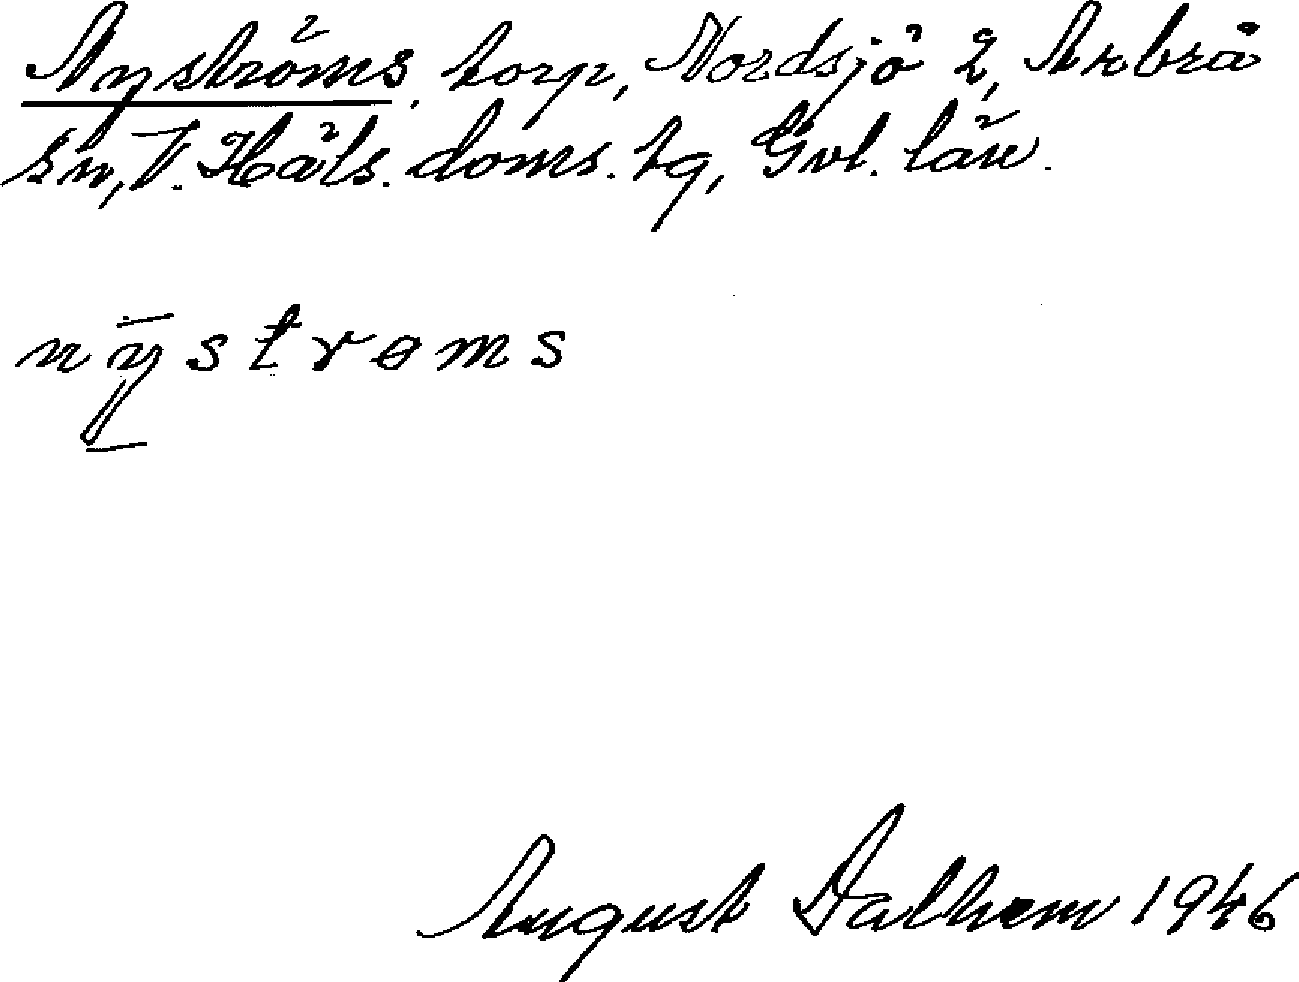 Nyströms, torp, Nordsjö 2, Arbrå
sn, V. Häls. doms. tg, Gvl. län.
nȳ̱strɵms
August Dalhem 1946